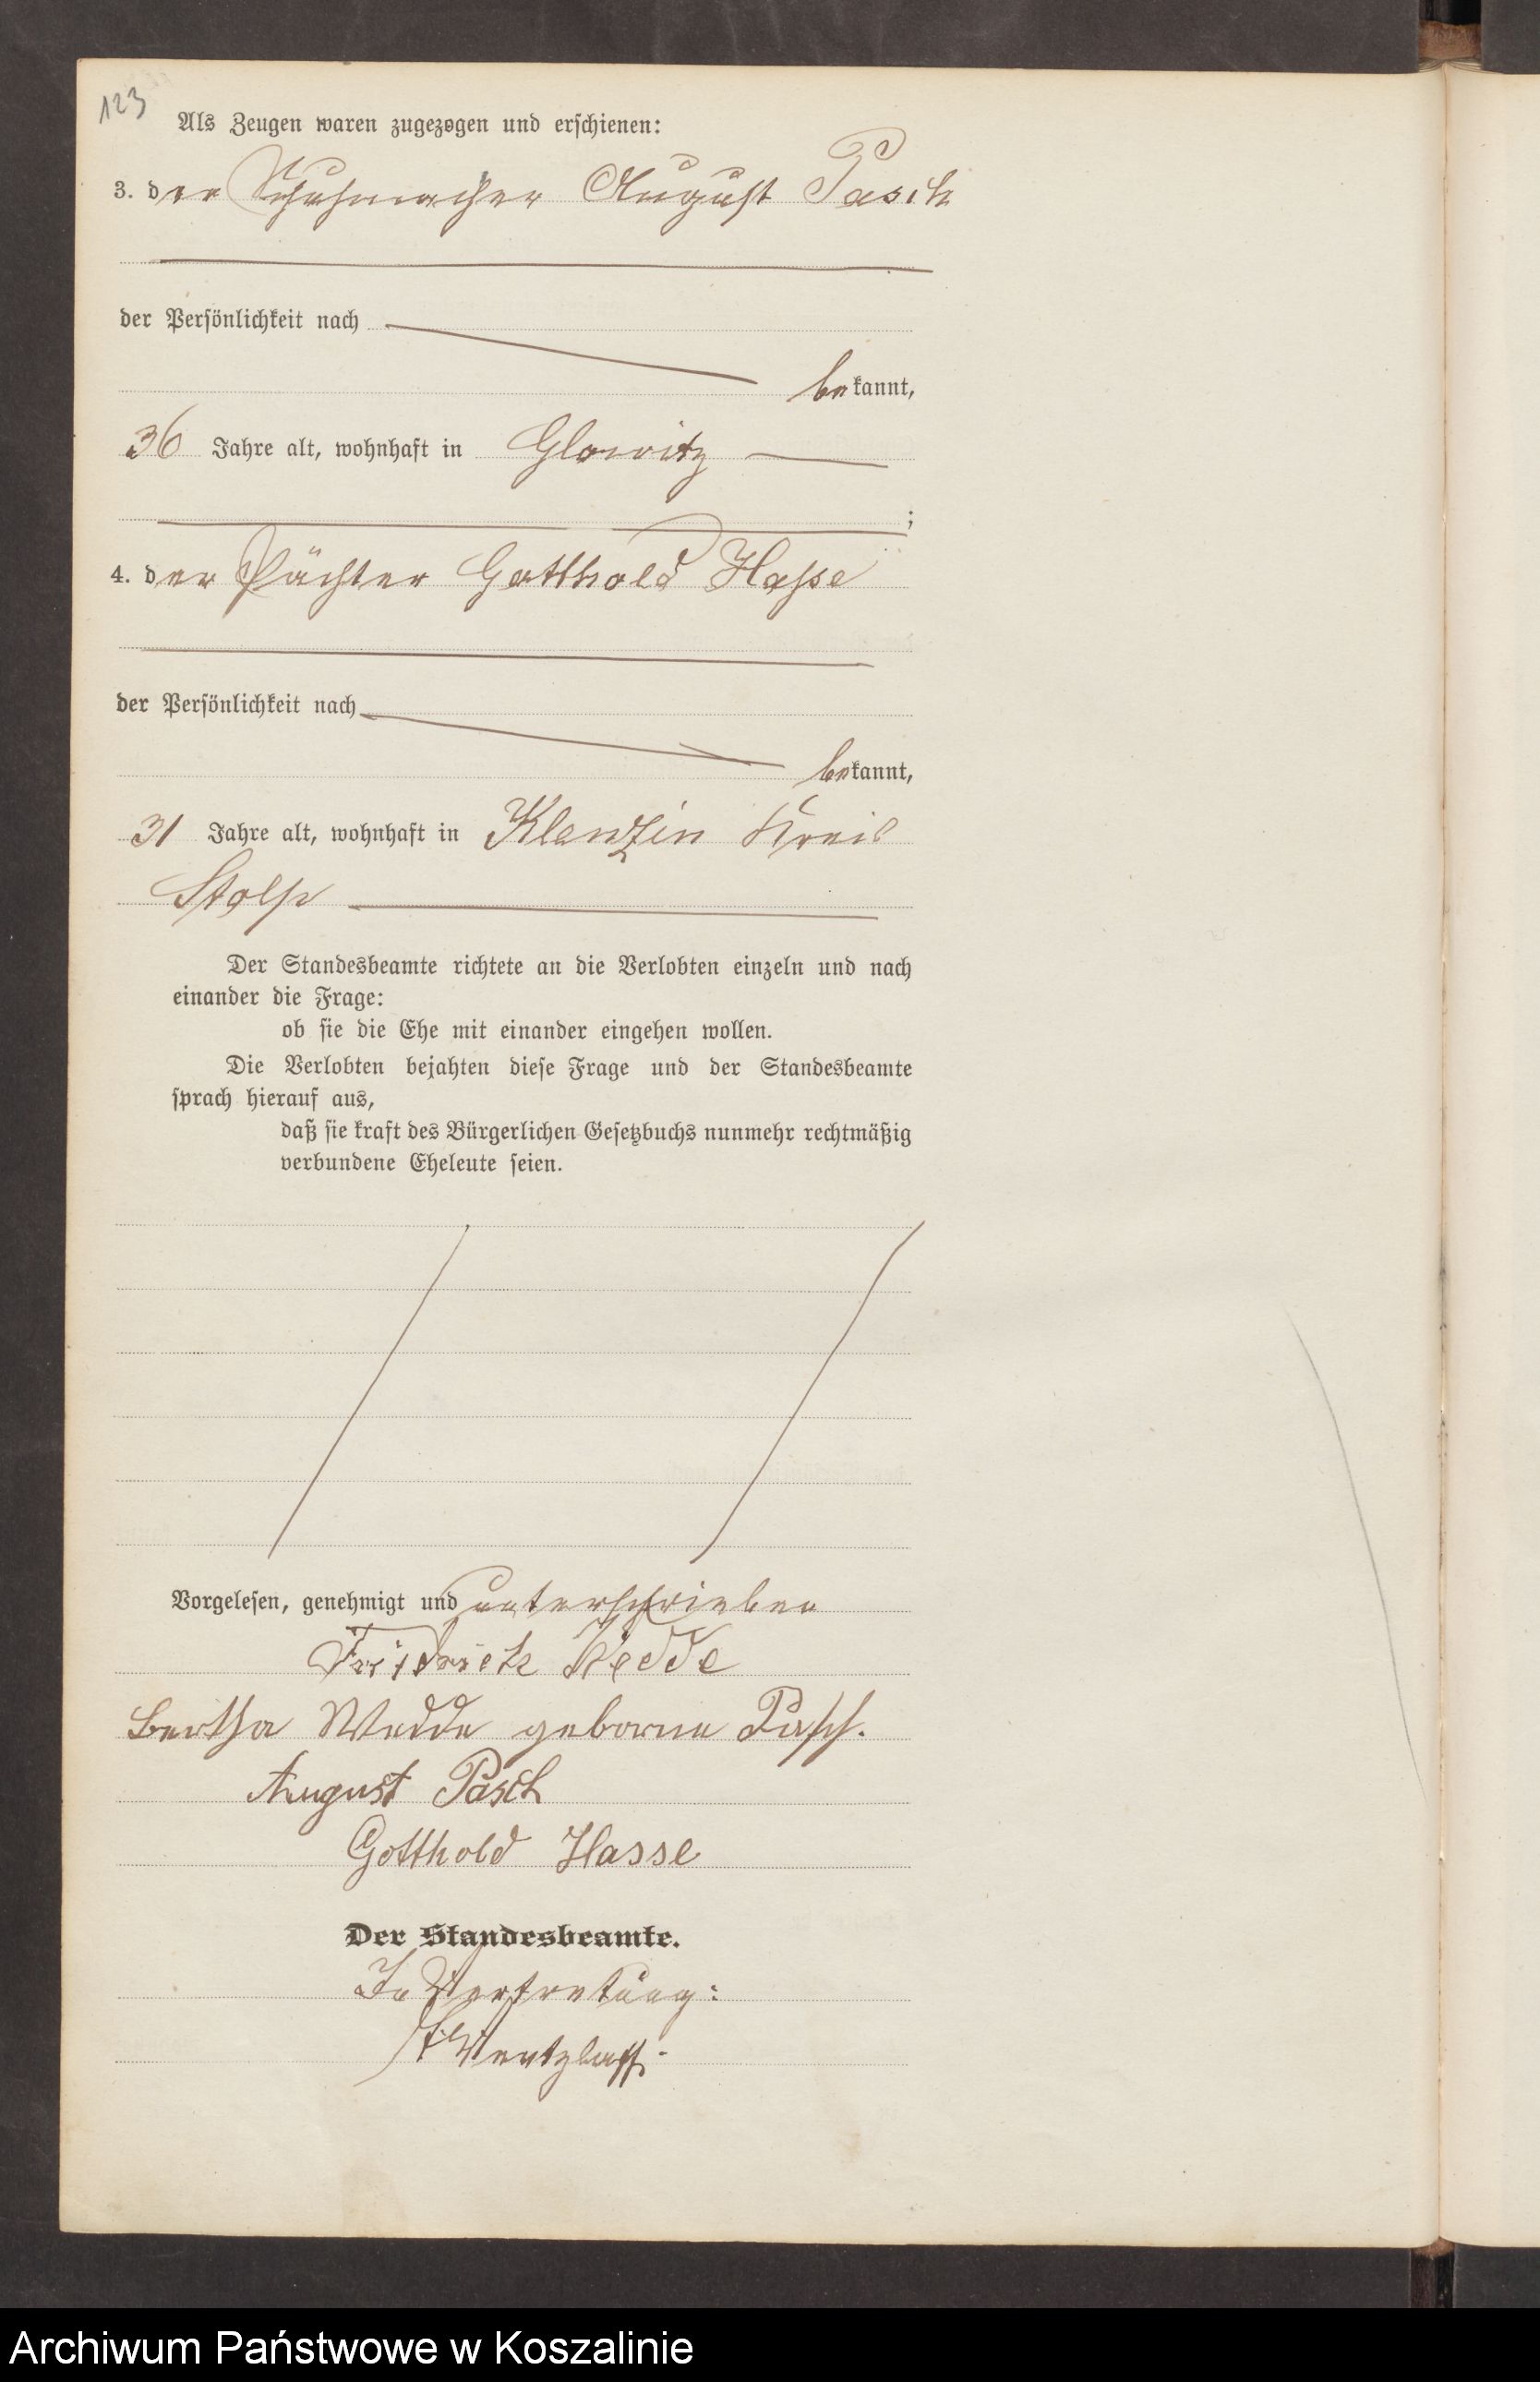 123
Als Zeugen waren zugezogen und erschienen:
3. der Schuhmacher August Pasch
der Persönlichkeit nach
bekannt,
36 Jahre alt, wohnhaft in Glowitz
;
4. der Pächter Gotthold Hasse
der Persönlichkeit nach
bekannt,
31 Jahre alt, wohnhaft in Klenzin Kreis
Stolp
Der Standesbeamte richtete an die Verlobten einzeln und nach
einander die Frage:
ob sie die Ehe mit einander eingehen wollen.
Die Verlobten bejahten diese Frage und der Standesbeamte
sprach hierauf aus,
daß sie kraft des Bürgerlichen Gesetzbuchs nunmehr rechtmäßig
verbundene Eheleute seien.
Vorgelesen, genehmigt und unterschrieben
Friedrich Wedde
Bertha Wedde geborne Pasch.
August Pasch
Gotthold Hasse
Der Standesbeamte.
In Vertretung:
Wentzlaff.
Archiwum Państwowe w Koszalinie